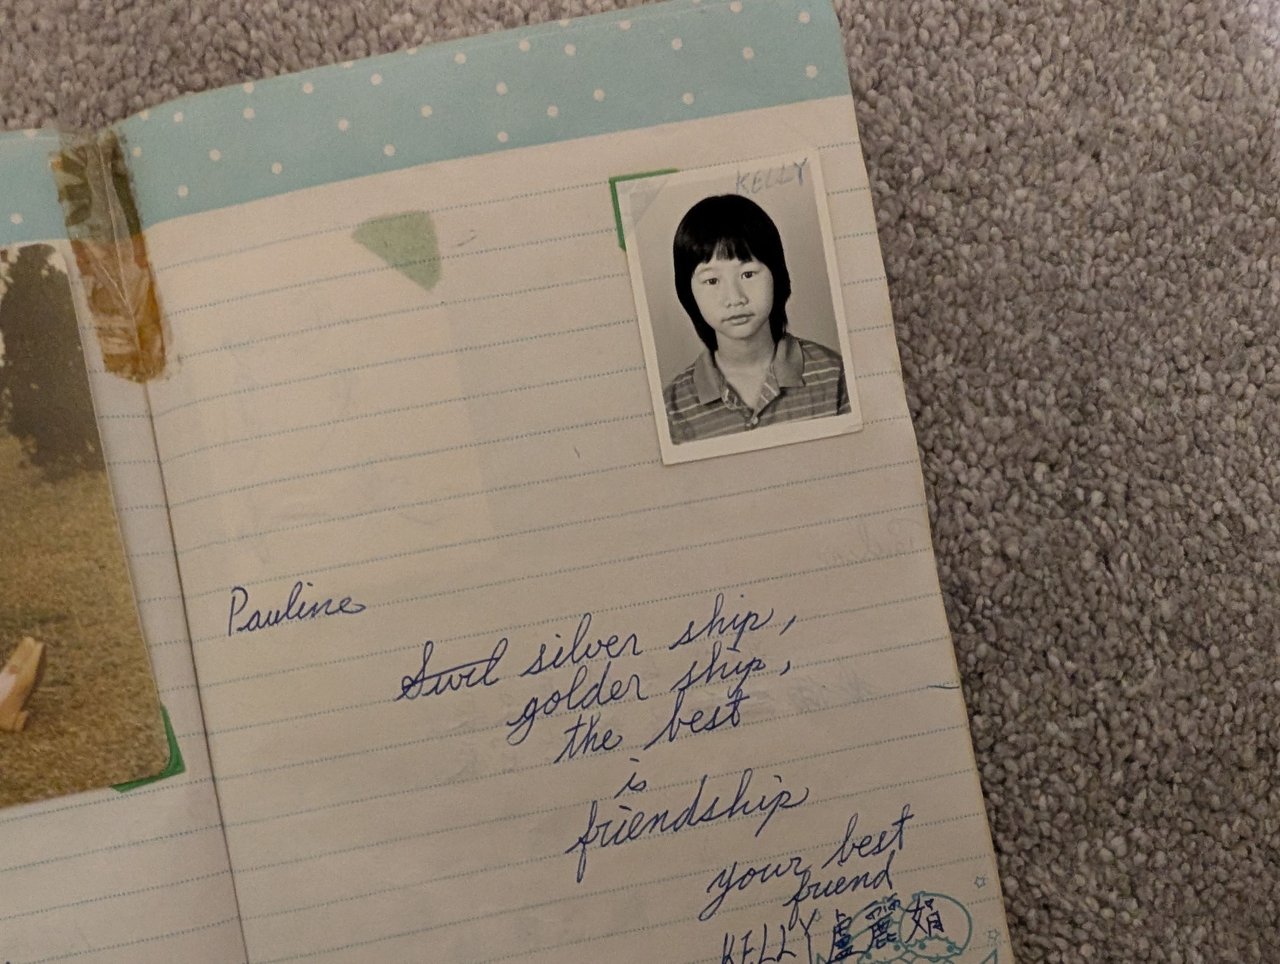 KELLY
Pauline
silver ship,
golder ship,
the best
is
friendship
your best
friend
KELLY 盧麗娟